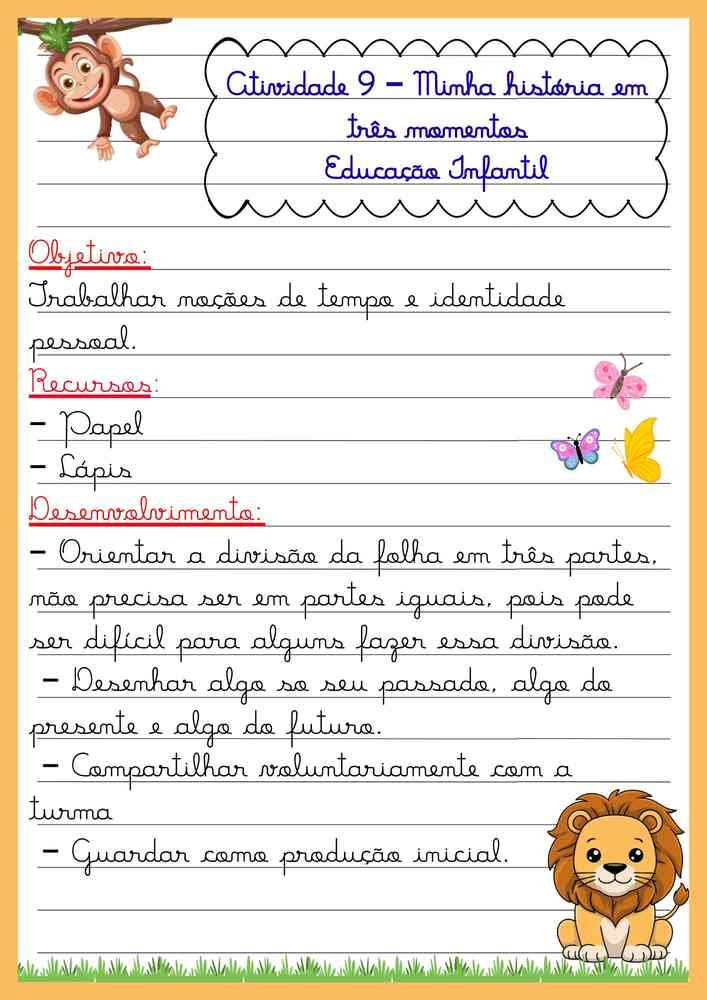 Atividade 9 – Minha história em
três momentos
Educação Infantil
Objetivo:
Trabalhar noções de tempo e identidade
pessoal.
Recursos:
– Papel
– Lápis
Desenvolvimento:
– Orientar a divisão da folha em três partes,
não precisa ser em partes iguais, pois pode
ser difícil para alguns fazer essa divisão.
– Desenhar algo so seu passado, algo do
presente e algo do futuro.
– Compartilhar voluntariamente com a
turma
– Guardar como produção inicial.